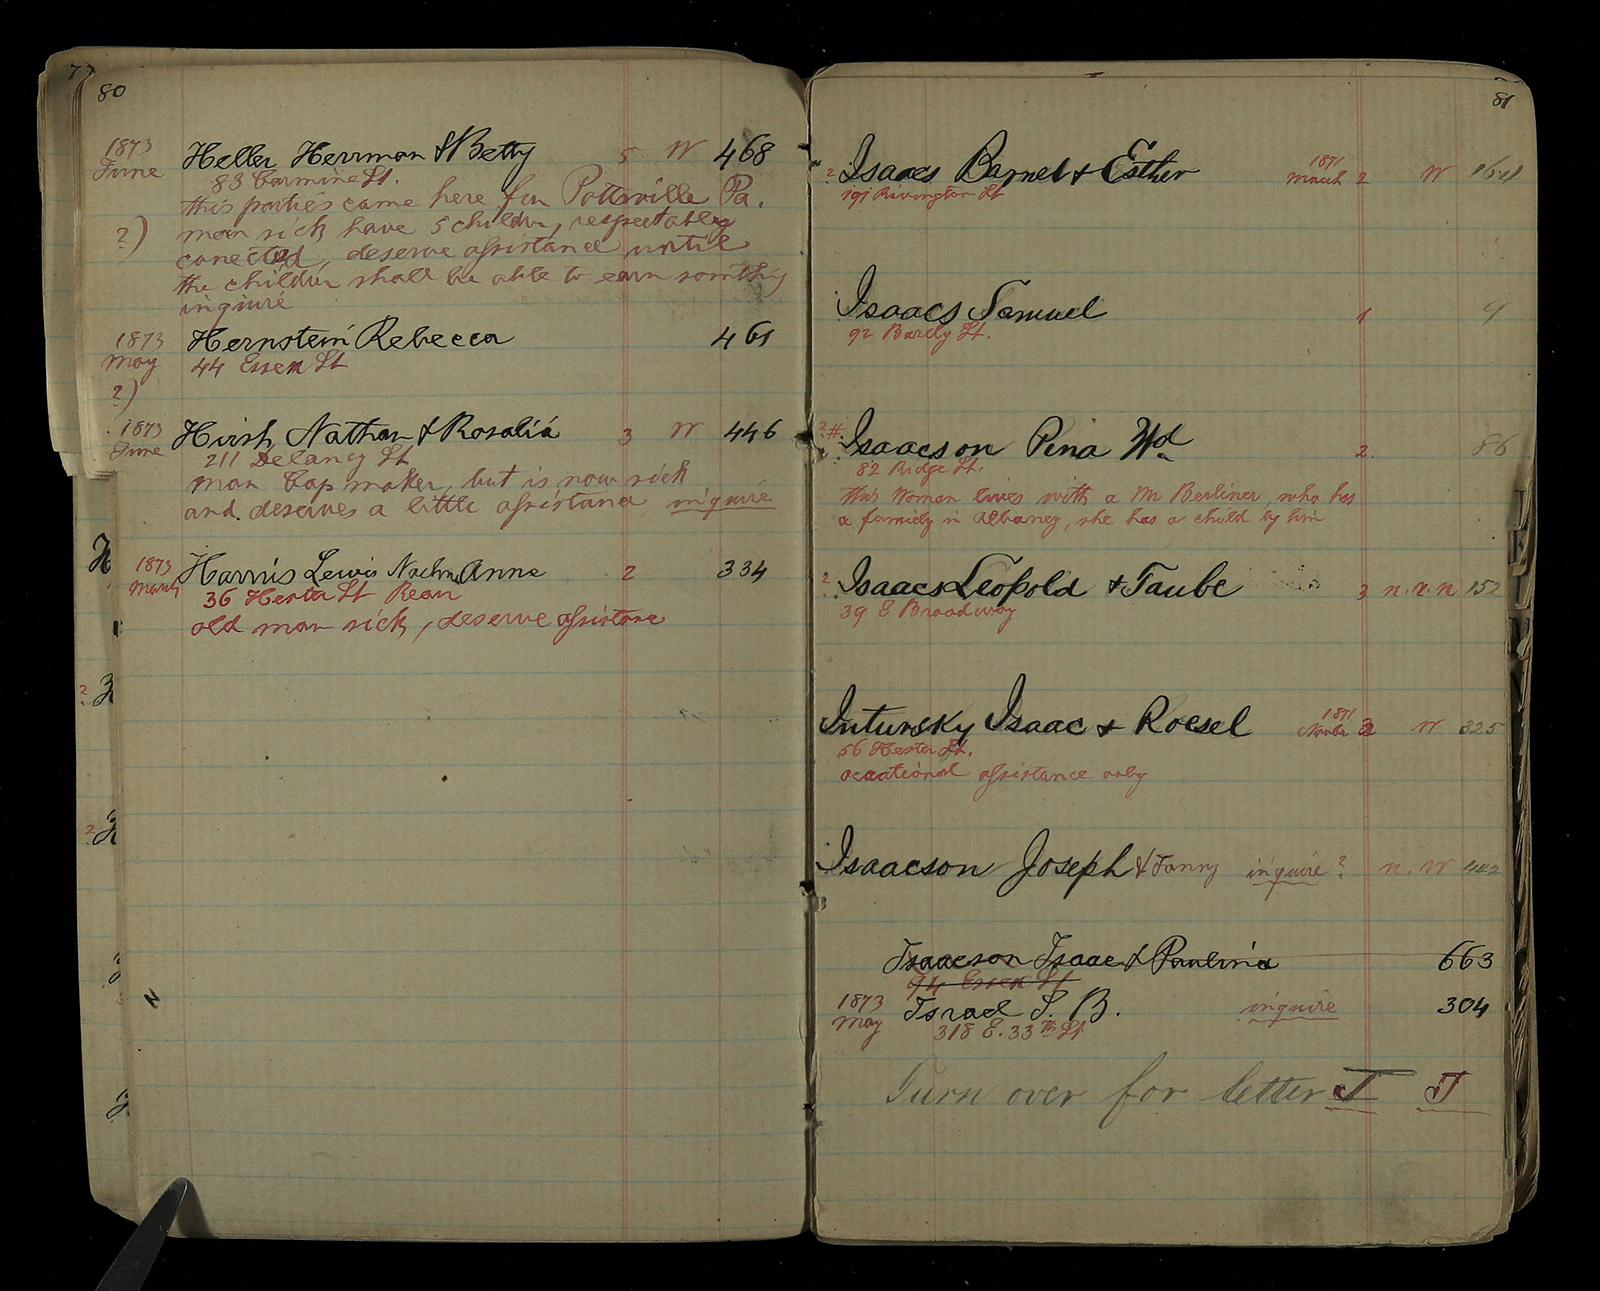 77
80
1873
June
Heller Herrman & Betty 5 W 468
83 Carmine St.
this parties came here fm Pottsville Pa.
2) man sick have 5 childn, respectably
conected, deserve assistance until
the childen shall be able to earn somthig
inquire
1873
May
Hernstein Rebecca 461
44 Essex St
2)
1873
June
Hirsh Nathan & Rosalia 3 W 446
211 Delancy St
man Cap maker, but is now sick
and deserves a little assistance inquire
1873
March
Harris Lewis Nachm Anne 2 334
36 Hester St Rear
old man sick, deserve assistance
81
2 Isaacs Barnet & Esther 1871 March 2 W 164
191 Rivington St
Isaacs Samuel 1 9
92 Bardy St.
2 # Isaacson Pina Wd 2. 86
82 Ridge St.
this Woman lives with a Mr Berliner, who has
a family in Albaney, she has a child by him
2 Isaacs Leopold & Taube 3 n. r. n 152
39 E Broadway
Intursky Isaac & Roesel 1871 Novbr 3 W 325
56 Hester St.
ocational assistance only
Isaacson Joseph & Fanny inquire? n. W 442
Isaacson Isaac & Paulina 663
94 Essex St
1873
May
Israel S. B. inquire 304
318 E. 33 th St
Turn over for letter J J